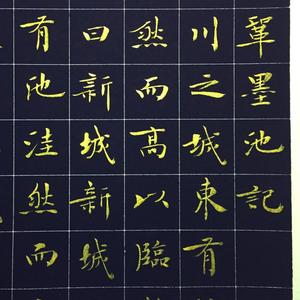 鞏墨池記
川之城東有
然而高以臨
曰新城新城
有池洼然而